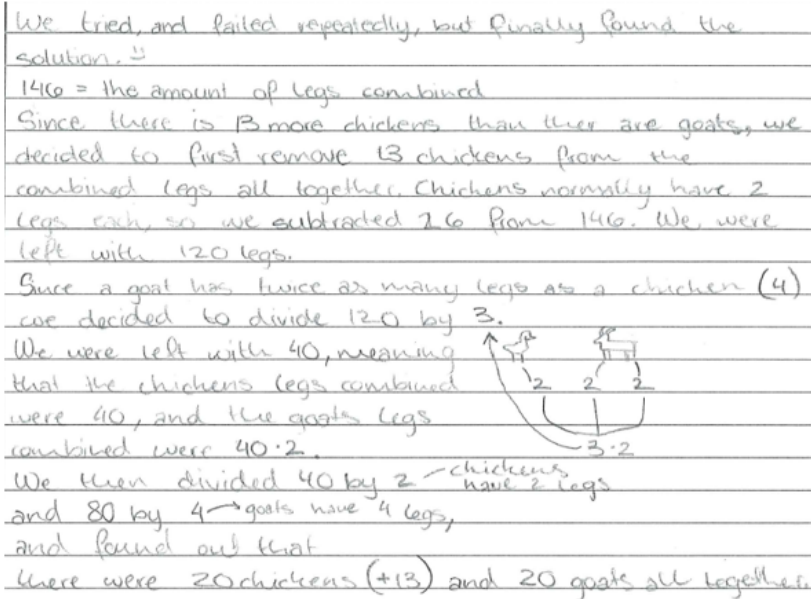 We tried, and failed repeatedly, but finally found the
solution. :)
146 = the amount of legs combined
Since there is 13 more chickens than ther are goats, we
decided to first remove 13 chickens from the
combined legs all together. Chickens normally have 2
legs each, so we subtracted 26 from 146. We were
left with 120 legs.
Since a goat has twice as many legs as a chicken (4)
we decided to divide 120 by 3.
We were left with 40, meaning
that the chickens legs combined
2 2 2
were 40, and the goats legs
combined were 40·2.
3·2
We then divided 40 by 2 – chickens
have 2 legs
and 80 by 4 → goats have 4 legs,
and found out that
there were 20 chickens (+13) and 20 goats all together.